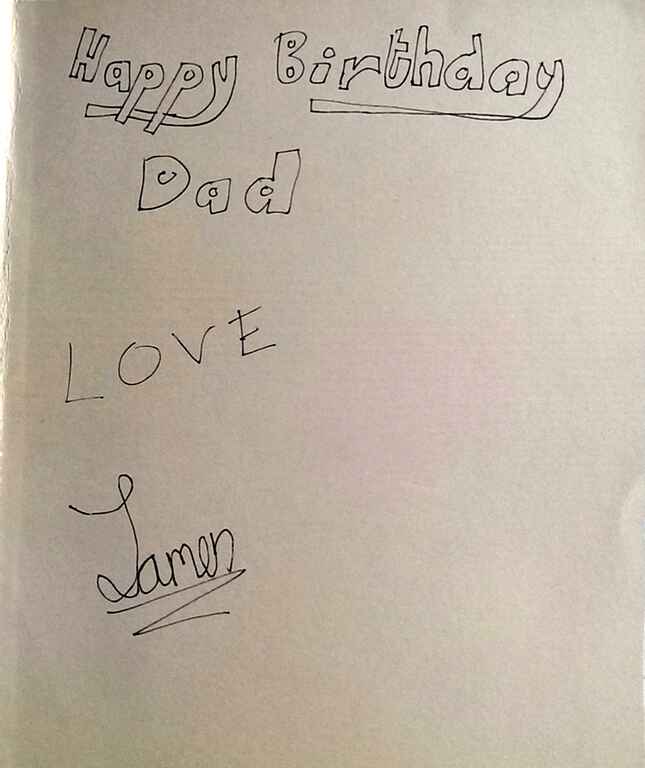 Happy Birthday
Dad
LOVE